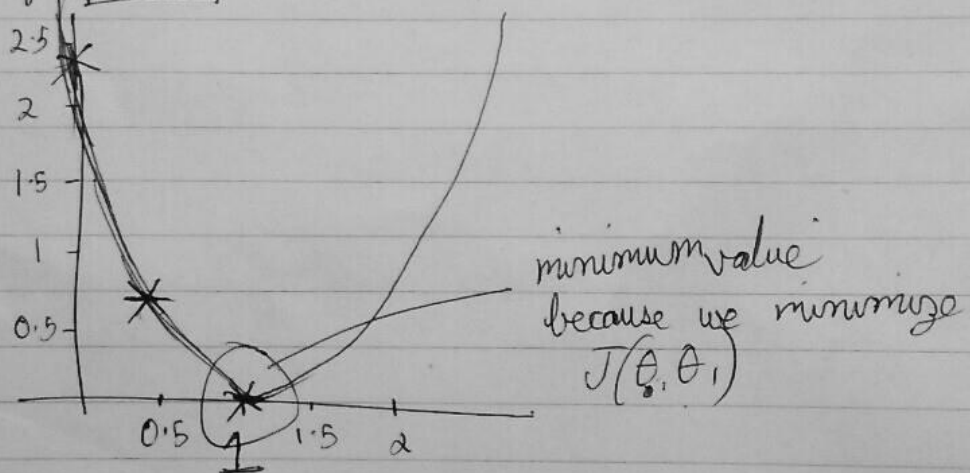 2.5
2
1.5
1
0.5
0.5 1 1.5 2
minimum value
because we minimize
J(θ₀, θ₁)